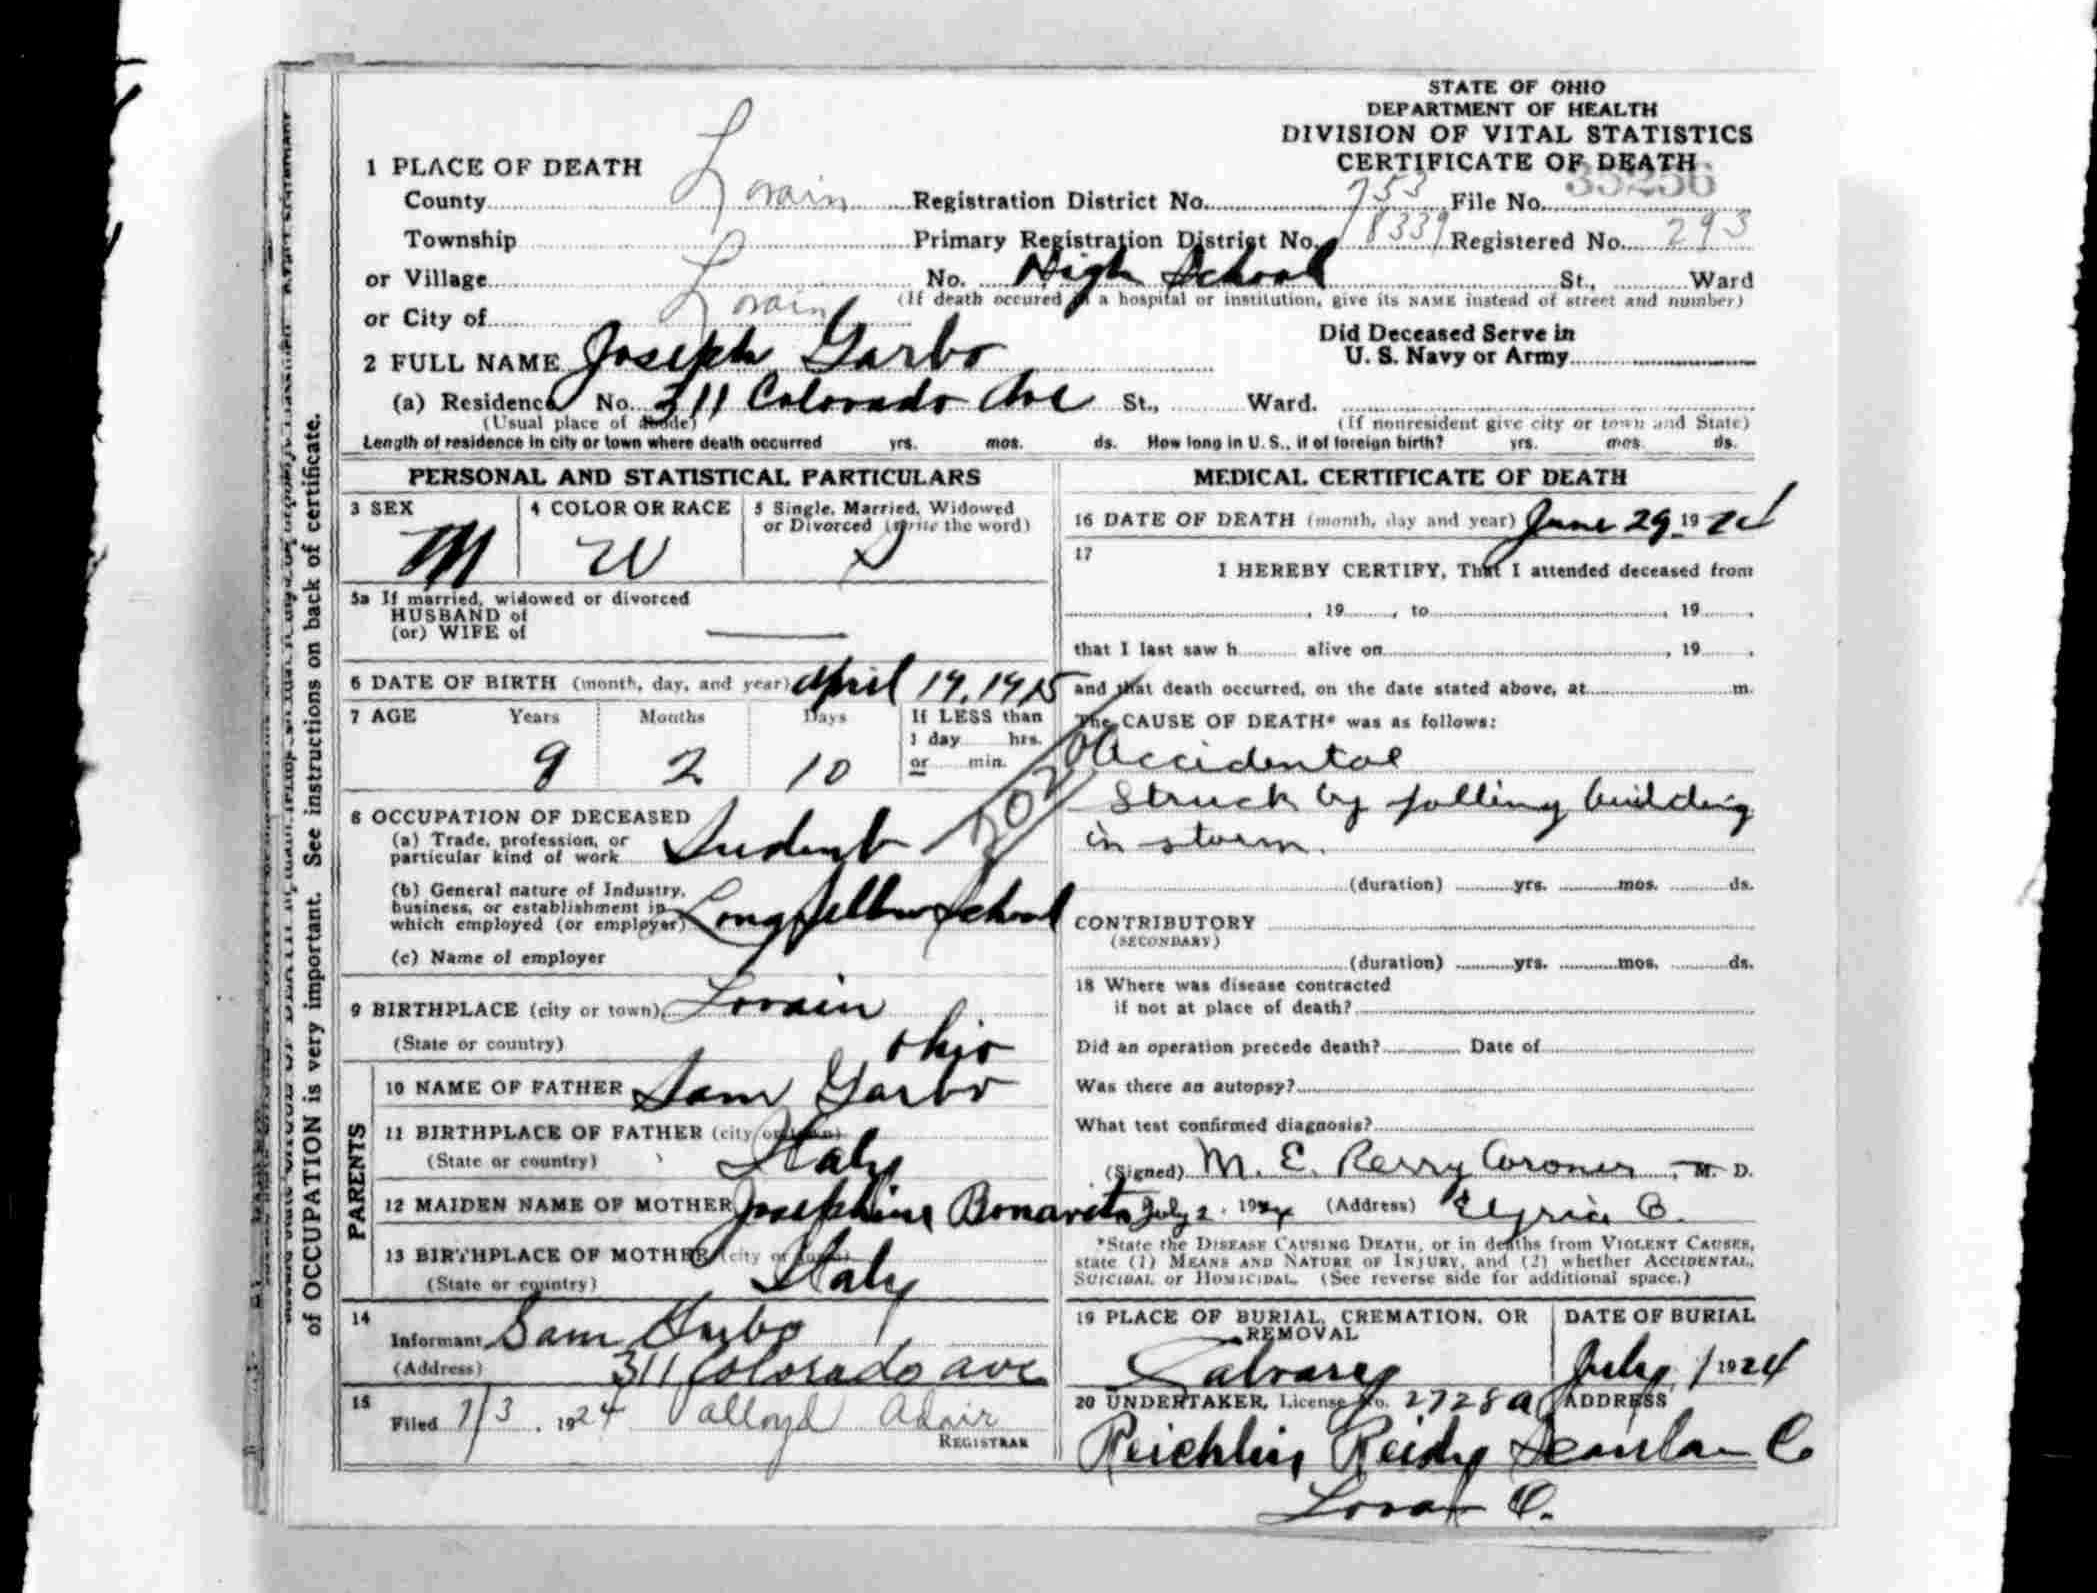 STATE OF OHIO
DEPARTMENT OF HEALTH
DIVISION OF VITAL STATISTICS
CERTIFICATE OF DEATH
35256
1 PLACE OF DEATH
County Lorain Registration District No. 753 File No.
Township Primary Registration District No. 8339 Registered No. 293
or Village No. High School St., Ward
(If death occured in a hospital or institution, give its NAME instead of street and number)
or City of Lorain
Did Deceased Serve in
U. S. Navy or Army
2 FULL NAME Joseph Garbo
(a) Residence No. 311 Colorado Ave St., Ward.
(Usual place of abode) (If nonresident give city or town and State)
Length of residence in city or town where death occurred yrs. mos. ds. How long in U. S., if of foreign birth? yrs. mos. ds.
PERSONAL AND STATISTICAL PARTICULARS
3 SEX 4 COLOR OR RACE 5 Single, Married, Widowed
or Divorced (write the word)
M W S
5a If married, widowed or divorced
HUSBAND of
(or) WIFE of
6 DATE OF BIRTH (month, day, and year) April 19, 1915
7 AGE Years Months Days If LESS than
1 day hrs.
or min.
9 2 10
8 OCCUPATION OF DECEASED
(a) Trade, profession, or
particular kind of work Student
(b) General nature of Industry,
business, or establishment in
which employed (or employer) Longfellow School
(c) Name of employer
9 BIRTHPLACE (city or town) Lorain
(State or country) Ohio
PARENTS
10 NAME OF FATHER Sam Garbo
11 BIRTHPLACE OF FATHER (city or town)
(State or country) Italy
12 MAIDEN NAME OF MOTHER Josephine Bonavita
13 BIRTHPLACE OF MOTHER (city or town)
(State or country) Italy
14
Informant Sam Garbo
(Address) 311 Colorado ave
15
Filed 7/3, 1924 Valloyd Adair
REGISTRAR
MEDICAL CERTIFICATE OF DEATH
16 DATE OF DEATH (month, day and year) June 29, 1924
17
I HEREBY CERTIFY, That I attended deceased from
, 19 , to , 19 ,
that I last saw h alive on , 19 ,
and that death occurred, on the date stated above, at m.
The CAUSE OF DEATH* was as follows:
Accidental
Struck by falling building
in storm.
(duration) yrs. mos. ds.
CONTRIBUTORY
(SECONDARY)
(duration) yrs. mos. ds.
18 Where was disease contracted
if not at place of death?
Did an operation precede death? Date of
Was there an autopsy?
What test confirmed diagnosis?
(Signed) M. E. Perry Coroner, M. D.
July 2, 1924 (Address) Elyria O.
*State the DISEASE CAUSING DEATH, or in deaths from VIOLENT CAUSES,
state (1) MEANS AND NATURE OF INJURY, and (2) whether ACCIDENTAL,
SUICIDAL or HOMICIDAL. (See reverse side for additional space.)
19 PLACE OF BURIAL, CREMATION, OR
REMOVAL
DATE OF BURIAL
Calvary July 1 1924
20 UNDERTAKER, License No. 2728A ADDRESS
Reichlin Reidy Scanlan Co
Lorain O.
of OCCUPATION is very important. See instructions on back of certificate.